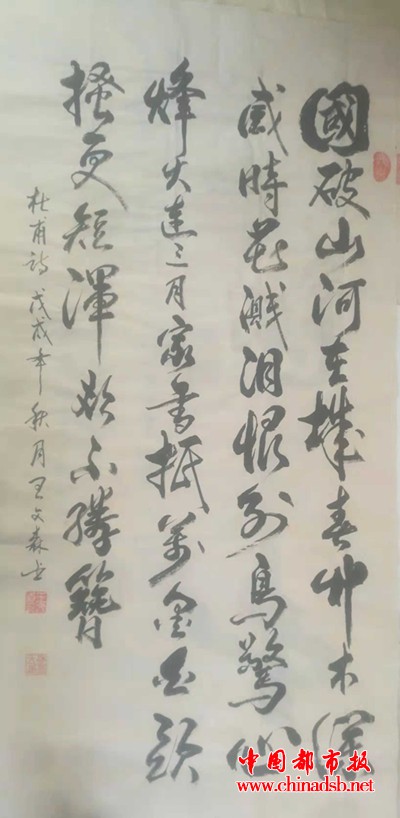 國破山河在城春艸木深
感時花濺泪恨别鳥驚心
烽火連三月家書抵萬金白頭
搔更短渾欲不勝簪
杜甫詩 戊戌年秋月王文森书
中国都市报
www.chinadsb.net